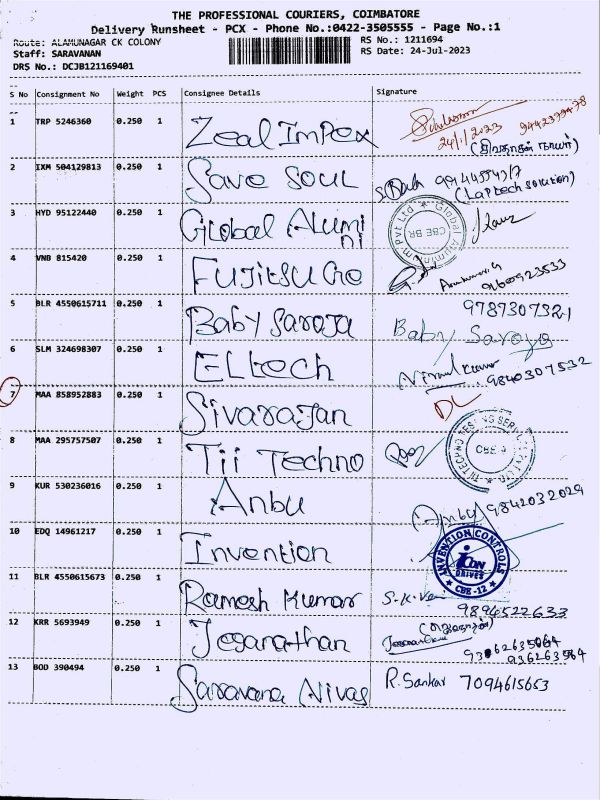 THE PROFESSIONAL COURIERS, COIMBATORE
Delivery Runsheet - PCX - Phone No.:0422-3505555 - Page No.:1
Route: ALAMUNAGAR CK COLONY
RS No.: 1211694
Staff: SARAVANAN
RS Date: 24-Jul-2023
DRS No.: DCJB121169401
S No Consignment No Weight PCS Consignee Details Signature
1 TRP 5246360 0.250 1 Zeal Impex
24/1/2023
2 IXM 504129813 0.250 1 Save Soul
(Laptech solution)
3 HYD 95122440 0.250 1 Global Alumi
ni
Global Aluminium Pvt Ltd
CBE BR
4 VNB 815420 0.250 1 Fujitsu Ge
5 BLR 4550615711 0.250 1 Baby Saroja
9787307321
Baby Saroja
6 SLM 324698307 0.250 1 Eltech
Nirmal Kumar
9840307532
7 MAA 858952883 0.250 1 Sivarajan DL
8 MAA 295757507 0.250 1 Tii Techno
CBE
9 KUR 530236016 0.250 1 Anbu
Anby 9842032029
10 EDQ 14961217 0.250 1 Invention
INVENTION CONTROLS
iCON
DRIVES
CBE-12
11 BLR 4550615673 0.250 1 Ramesh Kumar S.K.Ve
9894522633
12 KRR 5693949 0.250 1 Jeganathan
936263564
13 BOD 390494 0.250 1 Saravana Nivas R.Sankar 7094615653